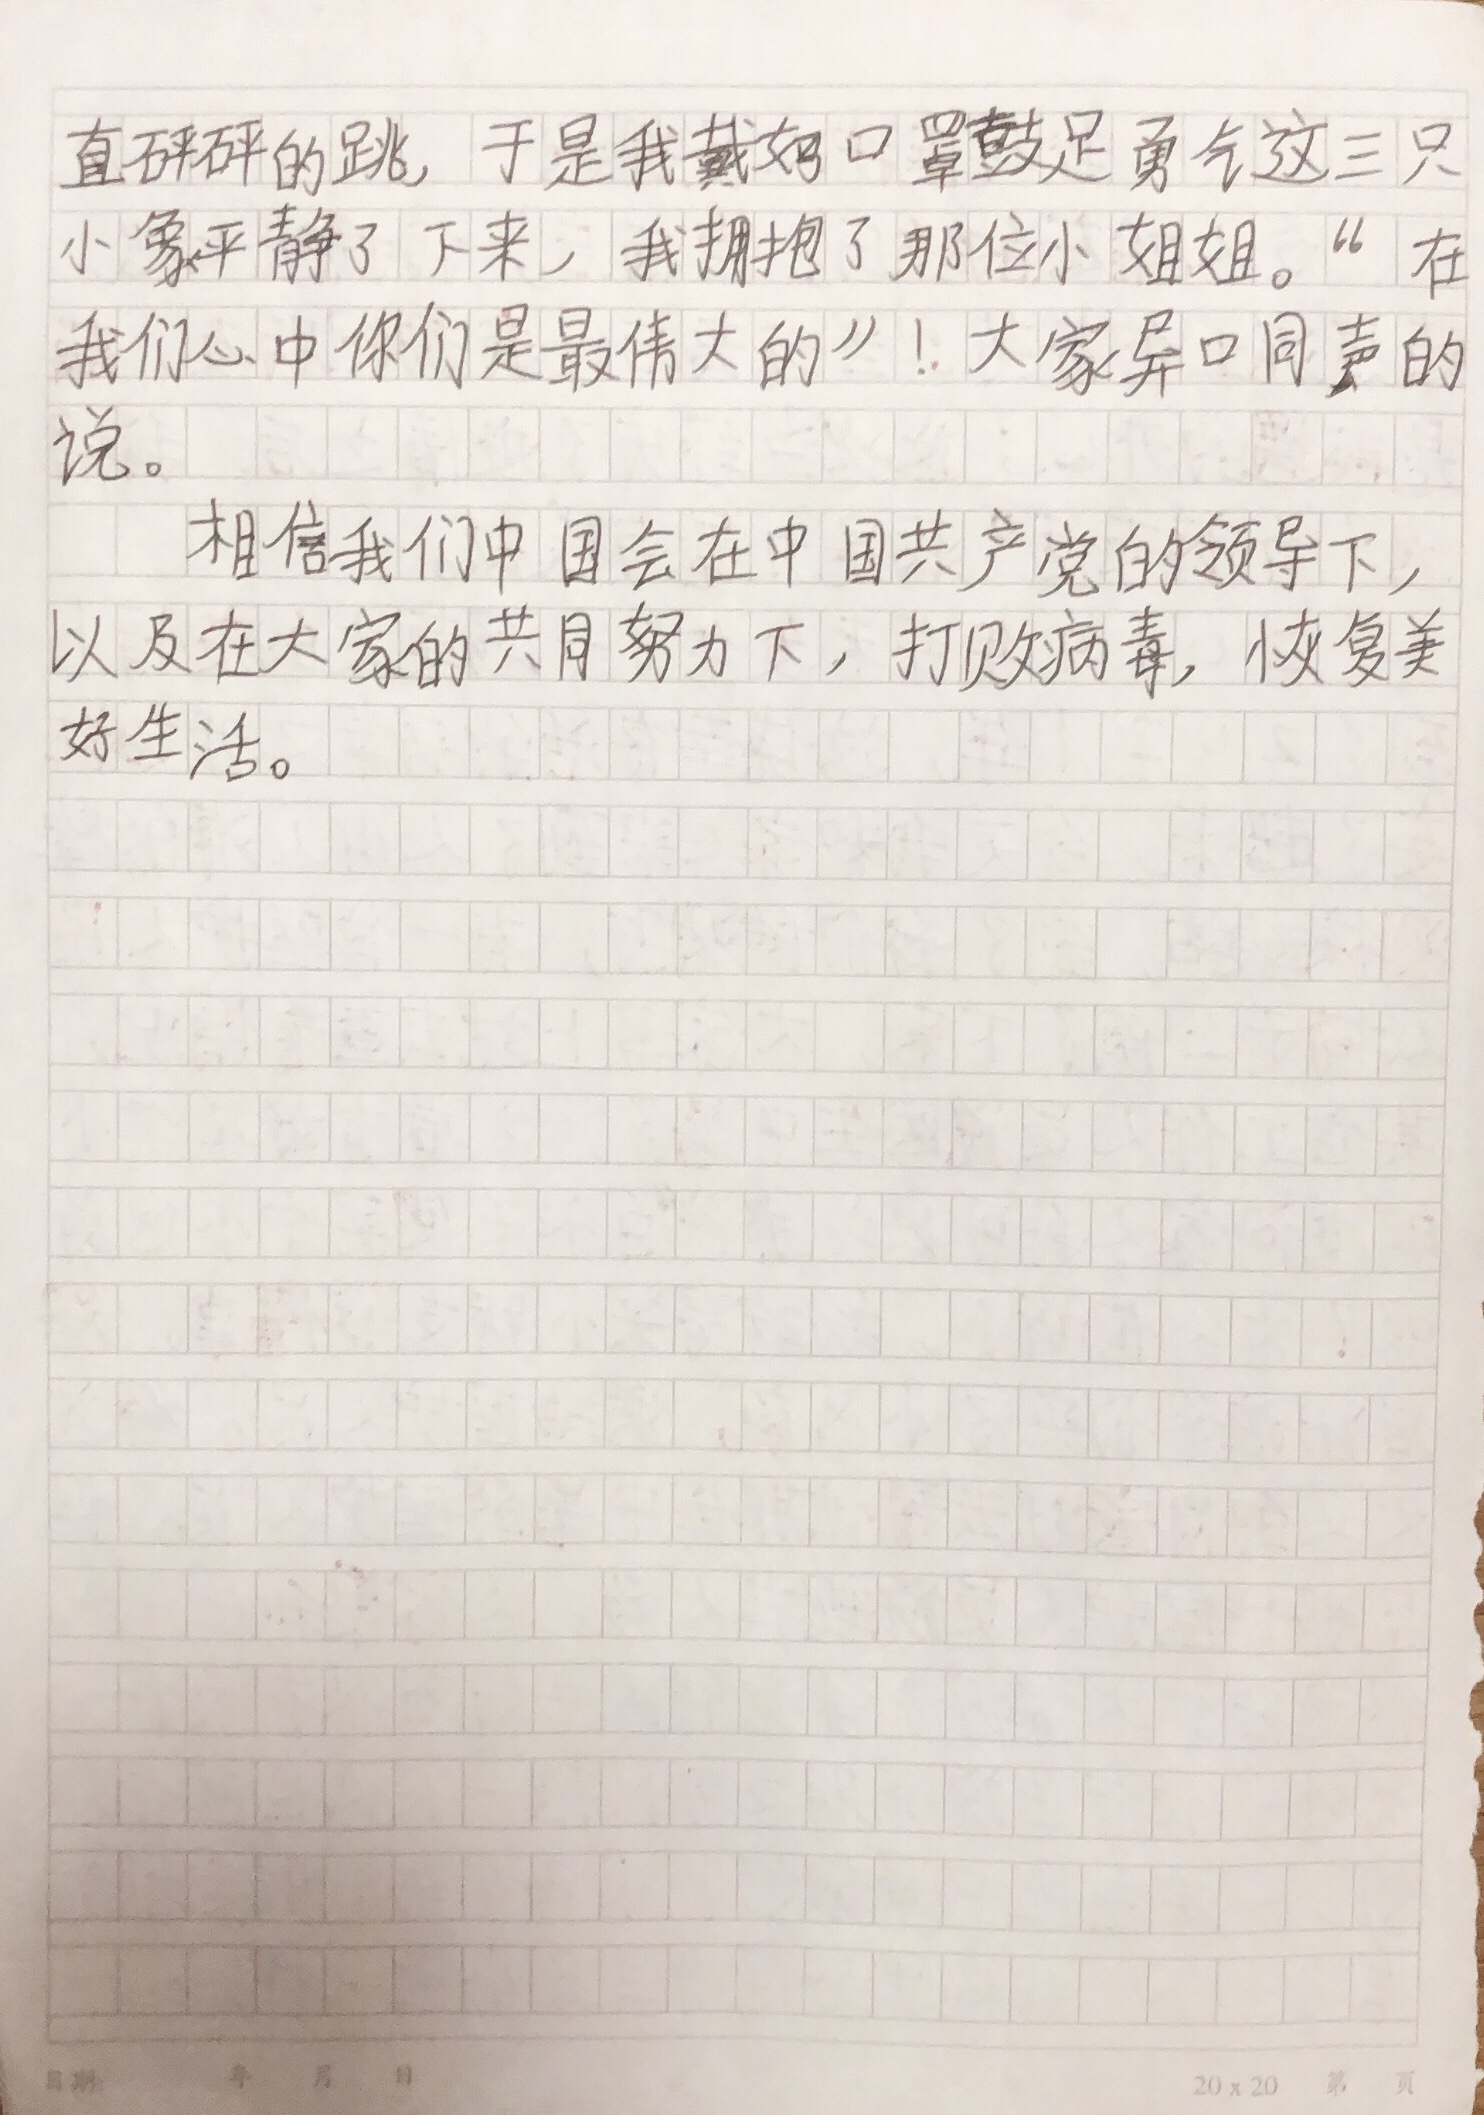 直砰砰的跳，于是我戴好口罩鼓足勇气这三只
小象平静了下来，我拥抱了那位小姐姐。“在
我们心中你们是最伟大的”！大家异口同声的
说。
相信我们中国会在中国共产党的领导下，
以及在大家的共同努力下，打败病毒，恢复美
好生活。
日期： 年 月 日 20 x 20 第 页